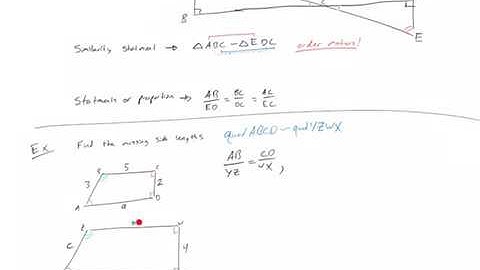 B C E
Similarity Statement → △ABC ~ △EDC order matters!
Statements of proportion → AB/ED = BC/DC = AC/EC
Ex Find the missing side lengths quad ABCD ~ quad YZWX
AB/YZ = CD/WX,
B 5 C
3 2
A a D
Z W
c 4